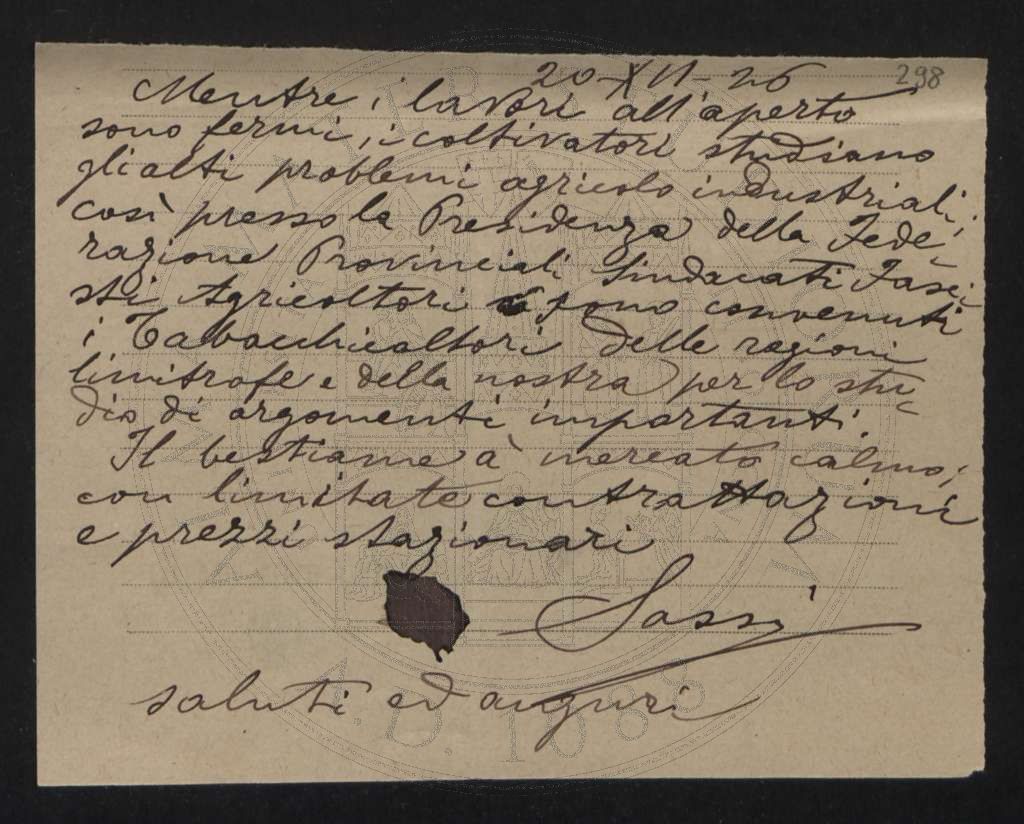 20-XII-26
298
Mentre i lavori all'aperto
sono fermi, i coltivatori studiano
gli alti problemi agricolo industriali;
così presso la Presidenza della Fede-
razione Provinciali Sindacati Fasci-
sti Agricoltori sono convenuti
i Tabacchicoltori delle regioni
limitrofe e della nostra per lo stu-
dio di argomenti importanti.
Il bestiame à mercato calmo,
con limitate contrattazioni
e prezzi stazionari
Sassi
saluti ed auguri
A.D. 1088